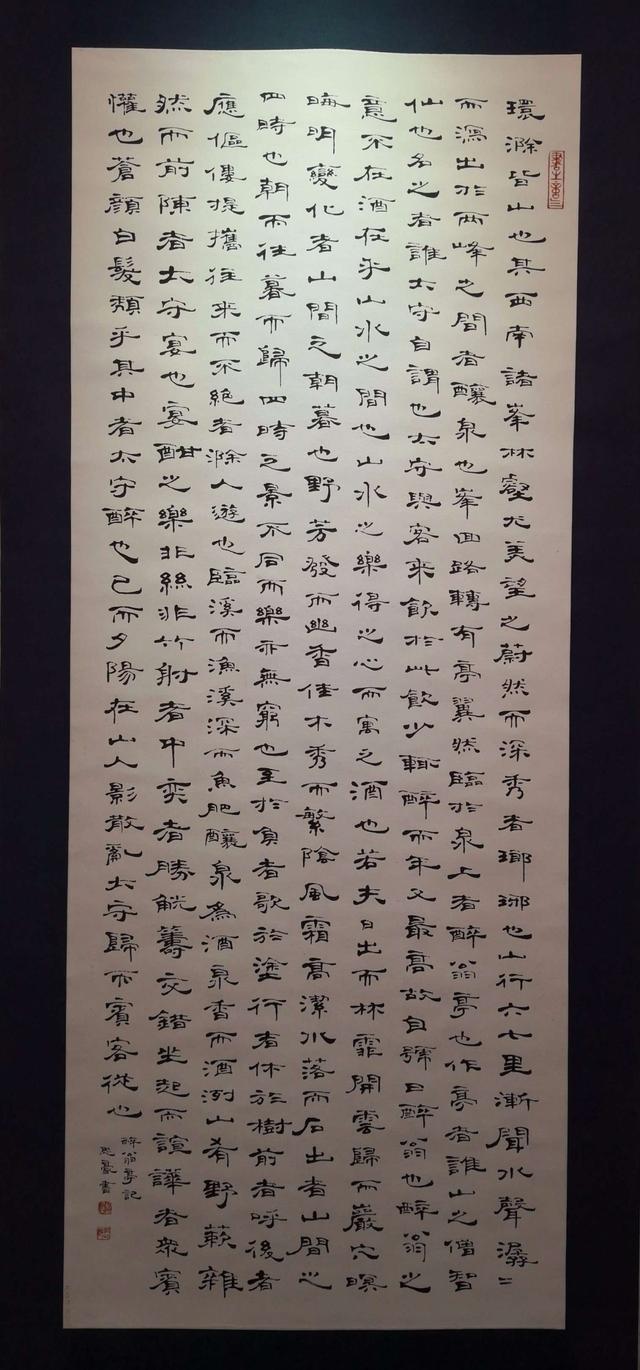 環滁皆山也其西南諸峯林壑尤美望之蔚然而深秀者瑯琊也山行六七里漸聞水聲潺〻
而瀉出於兩峰之間者釀泉也峯回路轉有亭翼然臨於泉上者醉翁亭也作亭者誰山之僧智
仙也名之者誰太守自謂也太守與客來飲於此飲少輒醉而年又最高故自號曰醉翁也醉翁之
意不在酒在乎山水之間也山水之樂得之心而寓之酒也若夫日出而林霏開雲歸而巖穴暝
晦明變化者山間之朝暮也野芳發而幽香佳木秀而繁陰風霜高潔水落而石出者山間之
四時也朝而往暮而歸四時之景不同而樂亦無窮也至於負者歌於塗行者休於樹前者呼後者
應傴僂提攜往來而不絕者滁人遊也臨溪而漁溪深而魚肥釀泉為酒泉香而酒洌山肴野蔌雜
然而前陳者太守宴也宴酣之樂非絲非竹射者中奕者勝觥籌交錯坐起而諠譁者眾賓
懽也蒼顏白髮頹乎其中者太守醉也已而夕陽在山人影散亂太守歸而賓客從也
醉翁亭記
豪書